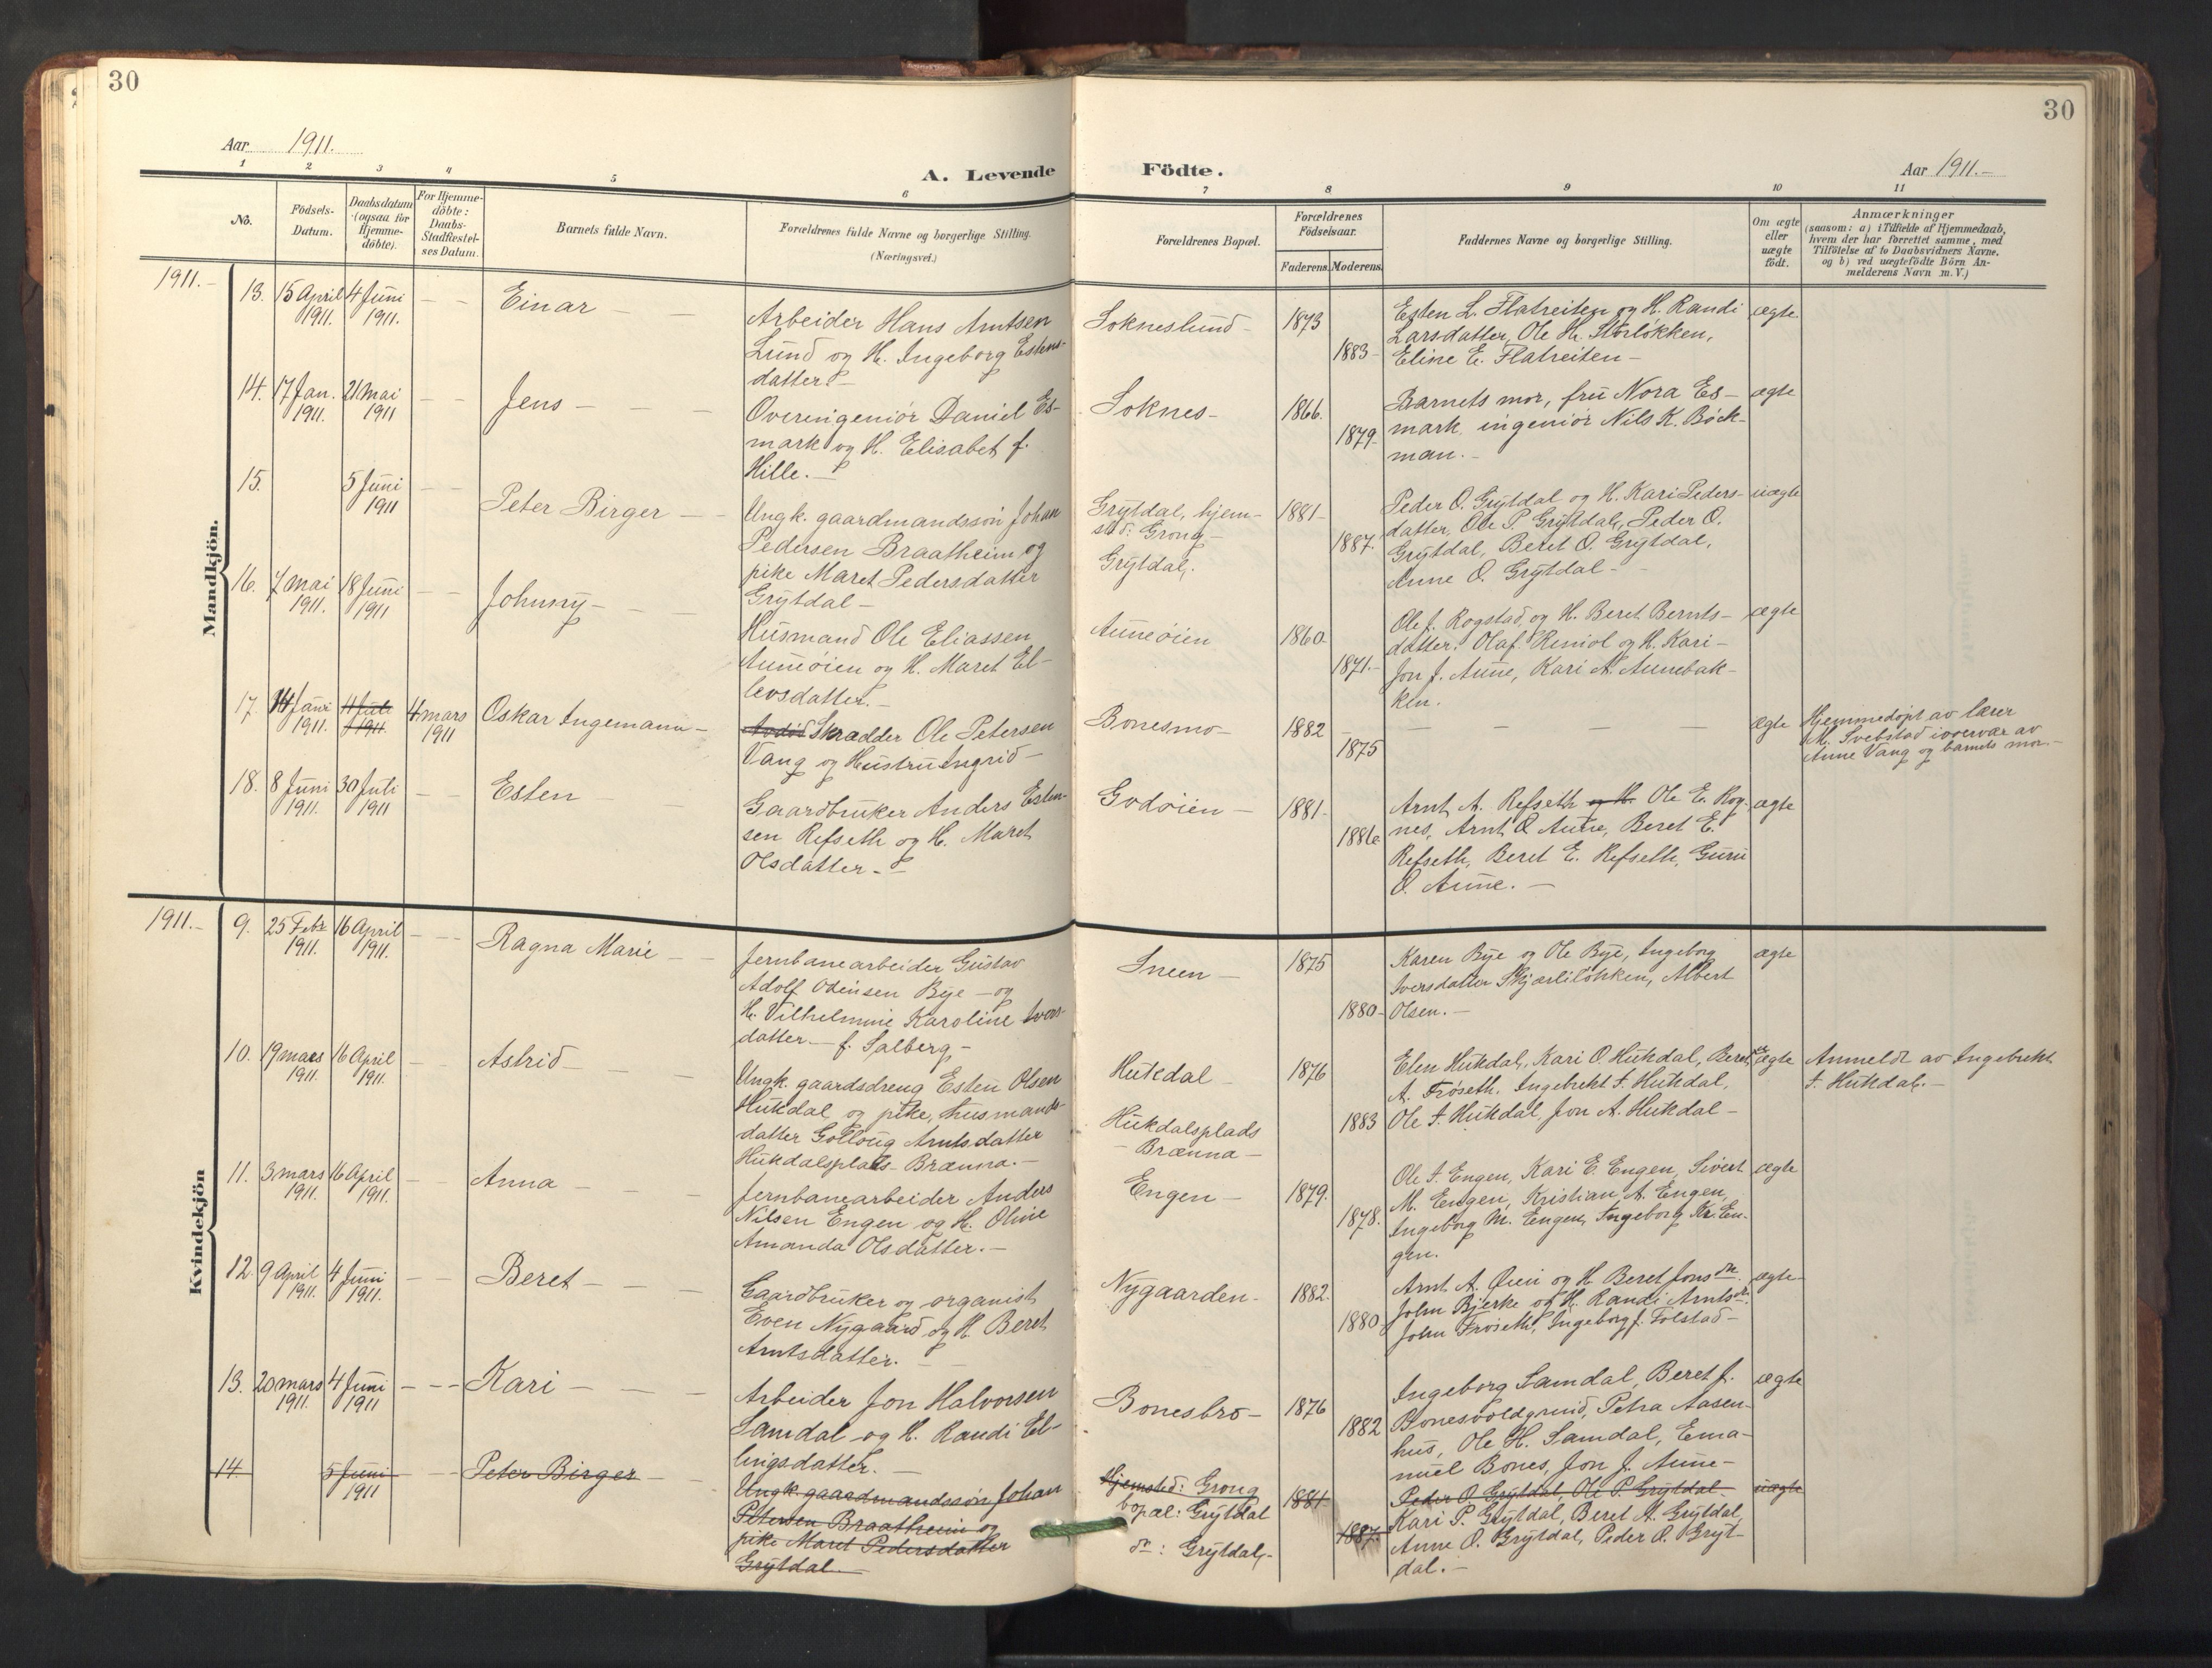 30
30
Aar 1911.
A. Levende
Födte.
Aar 1911.-
1 2 3 4 5 6 7 8 9 10 11
No.
Födsels-
Datum.
Daabsdatum
(ogsaa for
Hjemme-
döbte).
For Hjemme-
döbte:
Daabs-
Stadfæstel-
ses Datum.
Barnets fulde Navn.
Forældrenes fulde Navne og borgerlige Stilling.
(Næringsvei.)
Forældrenes Bopæl.
Forældrenes
Födselsaar.
Faderens. Moderens.
Faddernes Navne og borgerlige Stilling.
Om ægte
eller
uægte
födt.
Anmærkninger
(saasom: a) i Tilfælde af Hjemmedaab,
hvem der har forrettet samme, med
Tilföielse af to Daabsvidners Navne,
og b) ved uægtefödte Börn An-
melderens Navn m. V.)
Mandkjön.
1911.-
13. 15 April 1911. 4 Juni 1911. - - Einar - -
Arbeider Hans Arntsen
Lund og H. Ingeborg Estens-
datter.-
Sokneslund- 1873 1883-
Esten L. Flatreiten og H. Randi
Larsdatter, Ole H. Storløkken,
Eline E. Flatreiten-
ægte.
14. 17 Jan. 1911. 21 Mai 1911 - - Jens - - -
Overingeniør Daniel Es-
mark og H. Elisabet f.
Hille.-
Soknes- 1866. 1879.
Barnets mor, fru Nora Es-
mark, ingeniør Nils K. Bóck-
man.-
ægte
15. 5 Juni 1911 - - Peter Birger - -
Ungk. gaardmandssøn Johan
Pedersen Braatheim og
pike Maret Pedersdatter
Grytdal-
Grytdal, hjem-
sted: Grong-
Grytdal.
1881- 1887.
Peder O. Grytdal og H. Kari Peders-
datter, Ole P. Grytdal, Peder O.
Grytdal, Beret O. Grytdal,
Anne O. Grytdal-
uægte
16. 7 Mai 1911. 18 Juni 1911 - - Johnny - - -
Husmand Ole Eliassen
Auneøien og H. Maret El-
levsdatter.-
Auneøien 1860. 1871.-
Ole J. Rogstad og H. Beret Bernts-
datter. Olaf Reniol og H. Kari-
Jon J. Aune, Kari A. Aunebak-
ken.
ægte
17. 14 Juni 1911. 11 Juli 1911 4 mars 1911 Oskar Ingemann-
Avdød Skrædder Ole Petersen
Vang og Hustru Ingrid-
Bonesmo- 1882 1875
- - - -
ægte
Hjemmedøpt av lærer
M. Svebstad i overvær av
Anne Vang og barnets mor.-
18. 8 Juni 1911. 30 Juli 1911 - - Esten -
Gaardbruker Anders Esten-
sen Refseth og H. Maret
Olsdatter.-
Godøien- 1881- 1886
Arnt A. Refseth og H. Ole E. Rog-
nes, Arnt O. Aune, Beret E.
Refseth, Beret E. Refseth, Guru
O. Aune.-
ægte
Kvindekjön
1911.-
9. 25 Febr. 1911. 16 April 1911. - - Ragna Marie - -
Jernbanearbeider Gustav
Adolf Odinsen Bye - og
H. Vilhelmine Karoline Ivers-
datter - f. Salberg,-
Sneen- 1875 1880-
Karen Bye og Ole Bye, Ingeborg
Iversdatter Skjærliløkken, Albert
Olsen.-
ægte
10. 19 mars 1911. 16 April 1911. - - Astrid - - -
Ungk. gaardsdreng Esten Olsen
Hukdal og pike, husmands-
datter Golloug Arntsdatter
Hukdalsplads Brænna.-
Hukdal-
Hukdalsplads
-Brænna-
1876 1883
Elen Hukdal, Kari O. Hukdal, Beret
A. Frøseth, Ingebrekt I. Hukdal,
Ole I. Hukdal, Jon A. Hukdal-
uægte
Anmeldt av Ingebrekt
I. Hukdal.-
11. 3 mars 1911. 16 April 1911. - - Anna - - -
Jernbanearbeider Anders
Nilsen Engen og H. Oline
Amanda Olsdatter.-
Engen- 1879. 1878.
Ole I. Engen, Kari E. Engen, Sivert
M. Engen, Kristian A. Engen,
Ingeborg M. Engen, Ingeborg Kr. En-
gen.
ægte
12. 9 April 1911. 4 Juni 1911. - - Beret - -
Gaardbruker og organist
Even Nygaard og H. Beret
Arntsdatter.-
Nygaarden- 1882. 1880
Arnt A. Øien og H. Beret Jonsdtr.
John Bjerke og H. Randi Arntsdtr.
John Frøseth, Ingeborg J. Folstad-
ægte-
13. 20 mars 1911. 4 Juni 1911 - - - Kari - - -
Arbeider Jon Halvorsen
Samdal og H. Randi El-
lingsdatter.-
Bonesbro- 1876 1882
Ingeborg Samdal, Beret J.
Bonesvoldgrind, Petra Aasen-
hus, Ole H. Samdal, Ema-
nuel Bones, Jon J. Aune-
ægte
14. 5 Juni 1911 - - Peter Birger - -
Ungk. gaardmandssøn Johan
Petersen Braatheim og
pike Maret Pedersdatter
Grytdal.-
Hjemsted: Grong
bopæl: Grytdal
do: Grytdal,-
1881- 1887.
Peder O. Grytdal, Ole P. Grytdal-
Kari P. Grytdal, Beret A. Grytdal,
Anne O. Grytdal, Peder O. Gryt-
dal.-
uægte